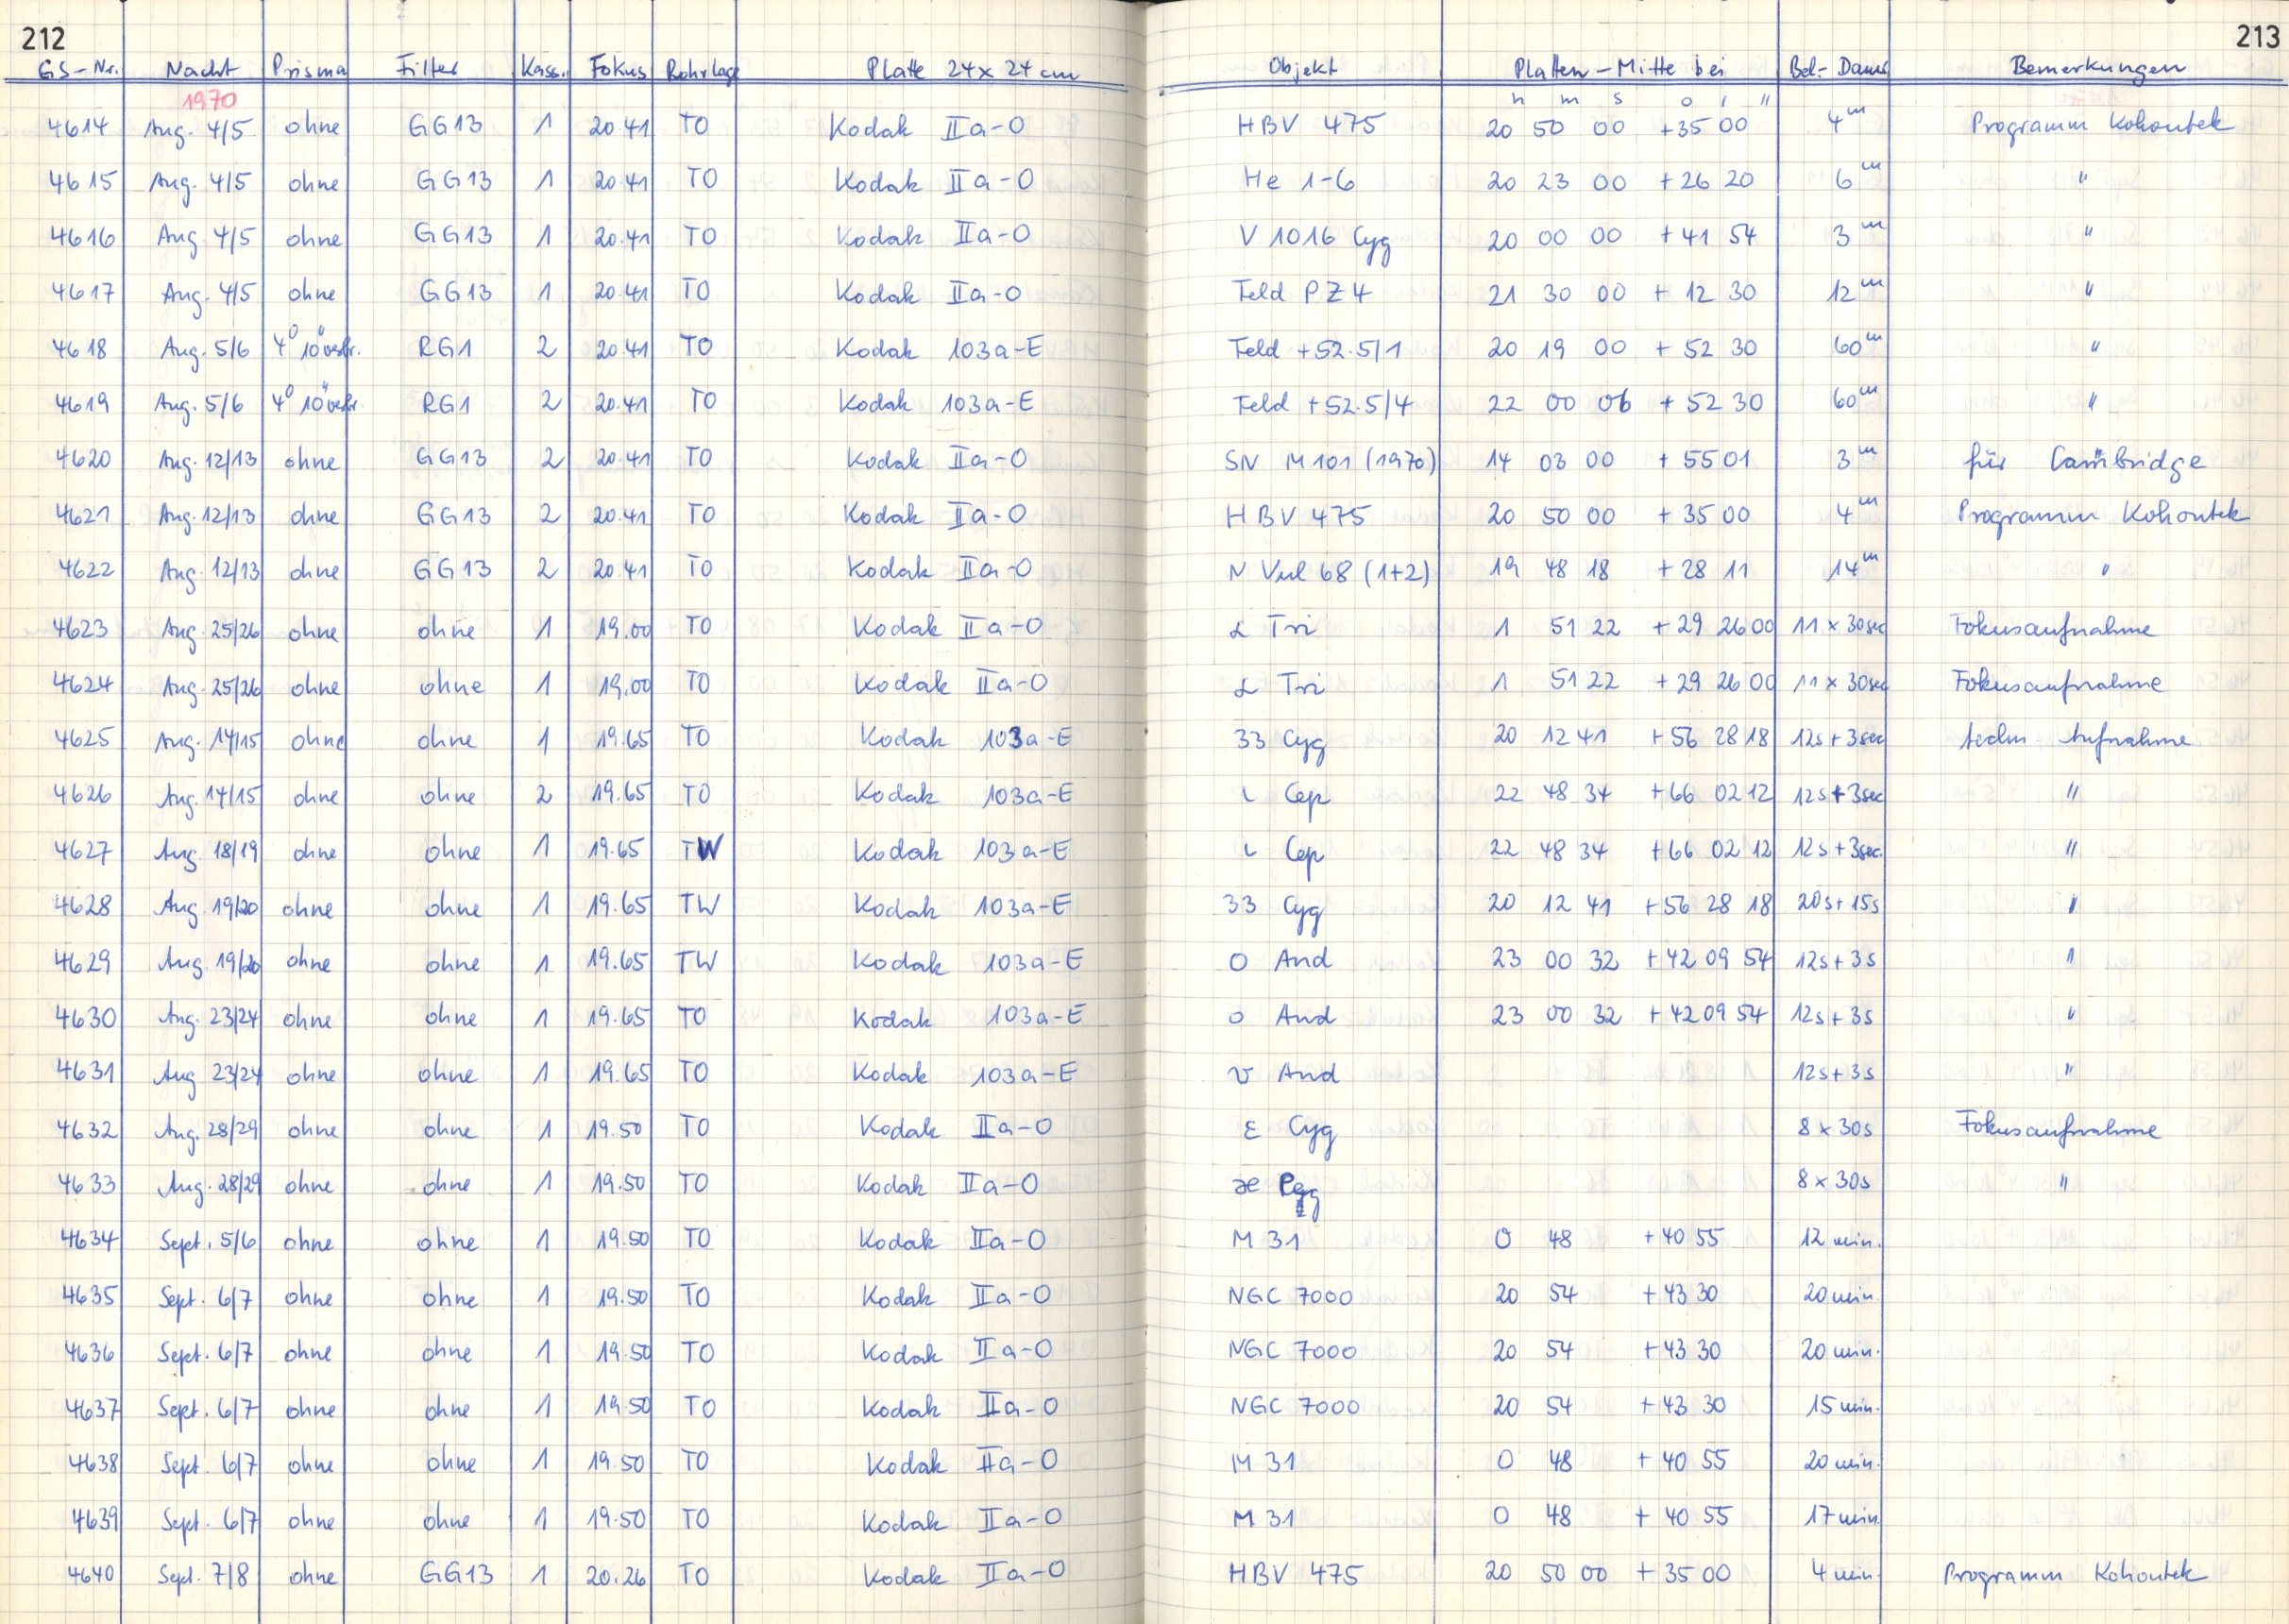 212 213
GS-Nr. Nacht Prisma Filter Kass. Fokus Rohrlage Platte 24 x 24 cm Objekt Platten-Mitte bei Bel.-Dauer Bemerkungen
1970 h m s o ' "
4614 Aug. 4/5 ohne GG13 1 20.41 TO Kodak IIa-O HBV 475 20 50 00 +35 00 4m Programm Kohoutek
4615 Aug. 4/5 ohne GG13 1 20.41 TO Kodak IIa-O He 1-6 20 23 00 +26 20 6m "
4616 Aug. 4/5 ohne GG13 1 20.41 TO Kodak IIa-O V 1016 Cyg 20 00 00 +41 54 3m "
4617 Aug. 4/5 ohne GG13 1 20.41 TO Kodak IIa-O Feld PZ4 21 30 00 + 12 30 12m "
4618 Aug. 5/6 4° 10" RG1 2 20.41 TO Kodak 103a-E Feld +52.5/1 20 19 00 + 52 30 60m "
4619 Aug. 5/6 4° 10" RG1 2 20.41 TO Kodak 103a-E Feld +52.5/4 22 00 06 + 52 30 60m "
4620 Aug. 12/13 ohne GG13 2 20.41 TO Kodak IIa-O SN M101 (1970) 14 03 00 + 55 01 3m für Cambridge
4621 Aug. 12/13 ohne GG13 2 20.41 TO Kodak IIa-O HBV 475 20 50 00 + 35 00 4m Programm Kohoutek
4622 Aug. 12/13 ohne GG13 2 20.41 TO Kodak IIa-O N Vul 68 (1+2) 19 48 18 + 28 11 14m "
4623 Aug. 25/26 ohne ohne 1 19.00 TO Kodak IIa-O α Tri 1 51 22 + 29 26 00 11 x 30sec Fokusaufnahme
4624 Aug. 25/26 ohne ohne 1 19.00 TO Kodak IIa-O α Tri 1 51 22 + 29 26 00 11 x 30sec Fokusaufnahme
4625 Aug. 14/15 ohne ohne 1 19.65 TO Kodak 103a-E 33 Cyg 20 12 41 + 56 28 18 12s + 3sec techn. Aufnahme
4626 Aug. 14/15 ohne ohne 2 19.65 TO Kodak 103a-E ι Cep 22 48 34 +66 02 12 12s + 3sec "
4627 Aug. 18/19 ohne ohne 1 19.65 TW Kodak 103a-E ι Cep 22 48 34 +66 02 12 12s + 3sec. "
4628 Aug. 19/20 ohne ohne 1 19.65 TW Kodak 103a-E 33 Cyg 20 12 41 +56 28 18 20s + 15s "
4629 Aug. 19/20 ohne ohne 1 19.65 TW Kodak 103a-E O And 23 00 32 +42 09 54 12s + 3s "
4630 Aug. 23/24 ohne ohne 1 19.65 TO Kodak 103a-E o And 23 00 32 +42 09 54 12s + 3s "
4631 Aug. 23/24 ohne ohne 1 19.65 TO Kodak 103a-E υ And 12s + 3s "
4632 Aug. 28/29 ohne ohne 1 19.50 TO Kodak IIa-O ε Cyg 8 x 30s Fokusaufnahme
4633 Aug. 28/29 ohne ohne 1 19.50 TO Kodak IIa-O æ 8 x 30s "
4634 Sept. 5/6 ohne ohne 1 19.50 TO Kodak IIa-O M 31 0 48 +40 55 12 min.
4635 Sept. 6/7 ohne ohne 1 19.50 TO Kodak IIa-O NGC 7000 20 54 +43 30 20 min.
4636 Sept. 6/7 ohne ohne 1 19.50 TO Kodak IIa-O NGC 7000 20 54 +43 30 20 min.
4637 Sept. 6/7 ohne ohne 1 19.50 TO Kodak IIa-O NGC 7000 20 54 +43 30 15 min.
4638 Sept. 6/7 ohne ohne 1 19.50 TO Kodak IIa-O M 31 0 48 + 40 55 20 min.
4639 Sept. 6/7 ohne ohne 1 19.50 TO Kodak IIa-O M 31 0 48 + 40 55 17 min.
4640 Sept. 7/8 ohne GG13 1 20.26 TO Kodak IIa-O HBV 475 20 50 00 + 35 00 4 min. Programm Kohoutek